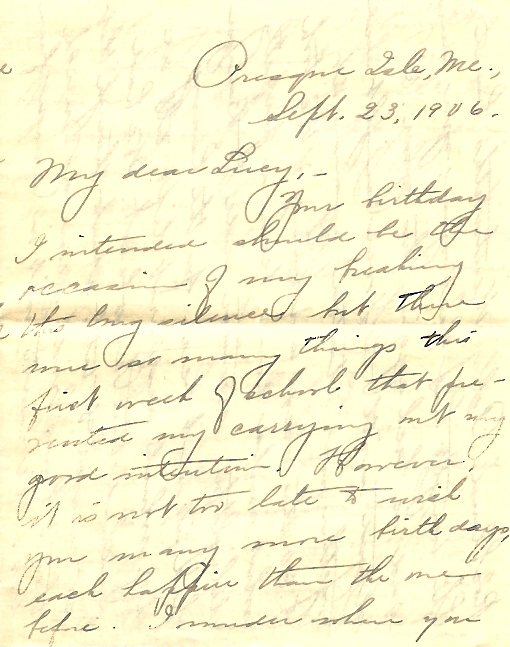 Presque Isle, Me.,
Sept. 23, 1906.
My dear Lucy,-
Your birthday
I intended should be the
occasion of my breaking
this long silence but there
were so many things this
first week of school that pre-
vented my carrying out my
good intention. However,
it is not too late to wish
you many more birthdays,
each happier than the one
before. I wonder where you